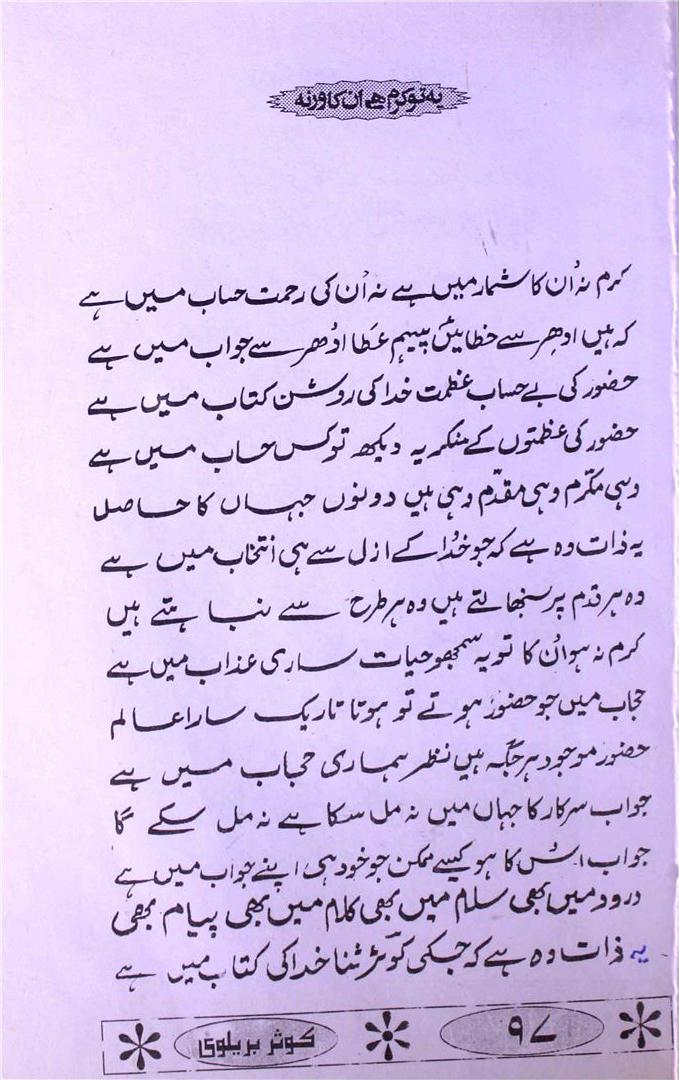 یہ تو کرم ہے ان کا ورنہ
کرم نہ اُن کا شمار میں ہے نہ اُن کی رحمت حساب میں ہے
کہ ہیں ادھر سے خطائیں پیہم عَطا اُدھر سے جواب میں ہے
حضور کی بے حساب عظمت خدا کی روشن کتاب میں ہے
حضور کی عظمتوں کے منکر یہ دیکھ تو کس حساب میں ہے
وہی مکرّم وہی مقدّم وہی ہیں دونوں جہاں کا حاصل
یہ ذات وہ ہے کہ جو خدُا کے ازل سے ہی انتخاب میں ہے
وہ ہر قدم پر سنبھالتے ہیں وہ ہر طرح سے نباہتے ہیں
کرم نہ ہو اُن کا تو یہ سمجھو حیات ساری عذاب میں ہے
حجاب میں جو حضور ہوتے تو ہوتا تاریک سارا عالم
حضور موجود ہر جگہ ہیں نظر ہماری حجاب میں ہے
جواب سرکار کا جہاں میں نہ مل سکا ہے نہ مل سکے گا
جواب اُس کا ہو کیسے ممکن جو خود ہی اپنے جواب میں ہے
درود میں بھی سلام میں بھی کلام میں بھی پیام بھی
یہ ذات وہ ہے کہ جسکی کوثر ثنا خدا کی کتاب میں ہے
۹۷
کوثر بریلوی